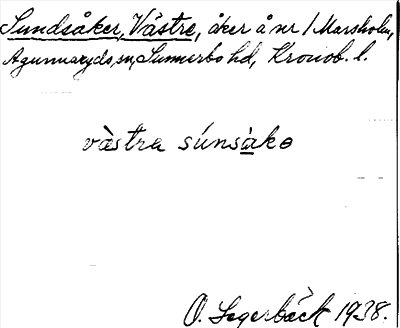 Sundsåker, Västre, åker å nr 1 Marsholm,
Agunnaryds sn, Sunnerbo hd, Kronob. l.
västra súnsàkə
O. Segerbäck 1938.